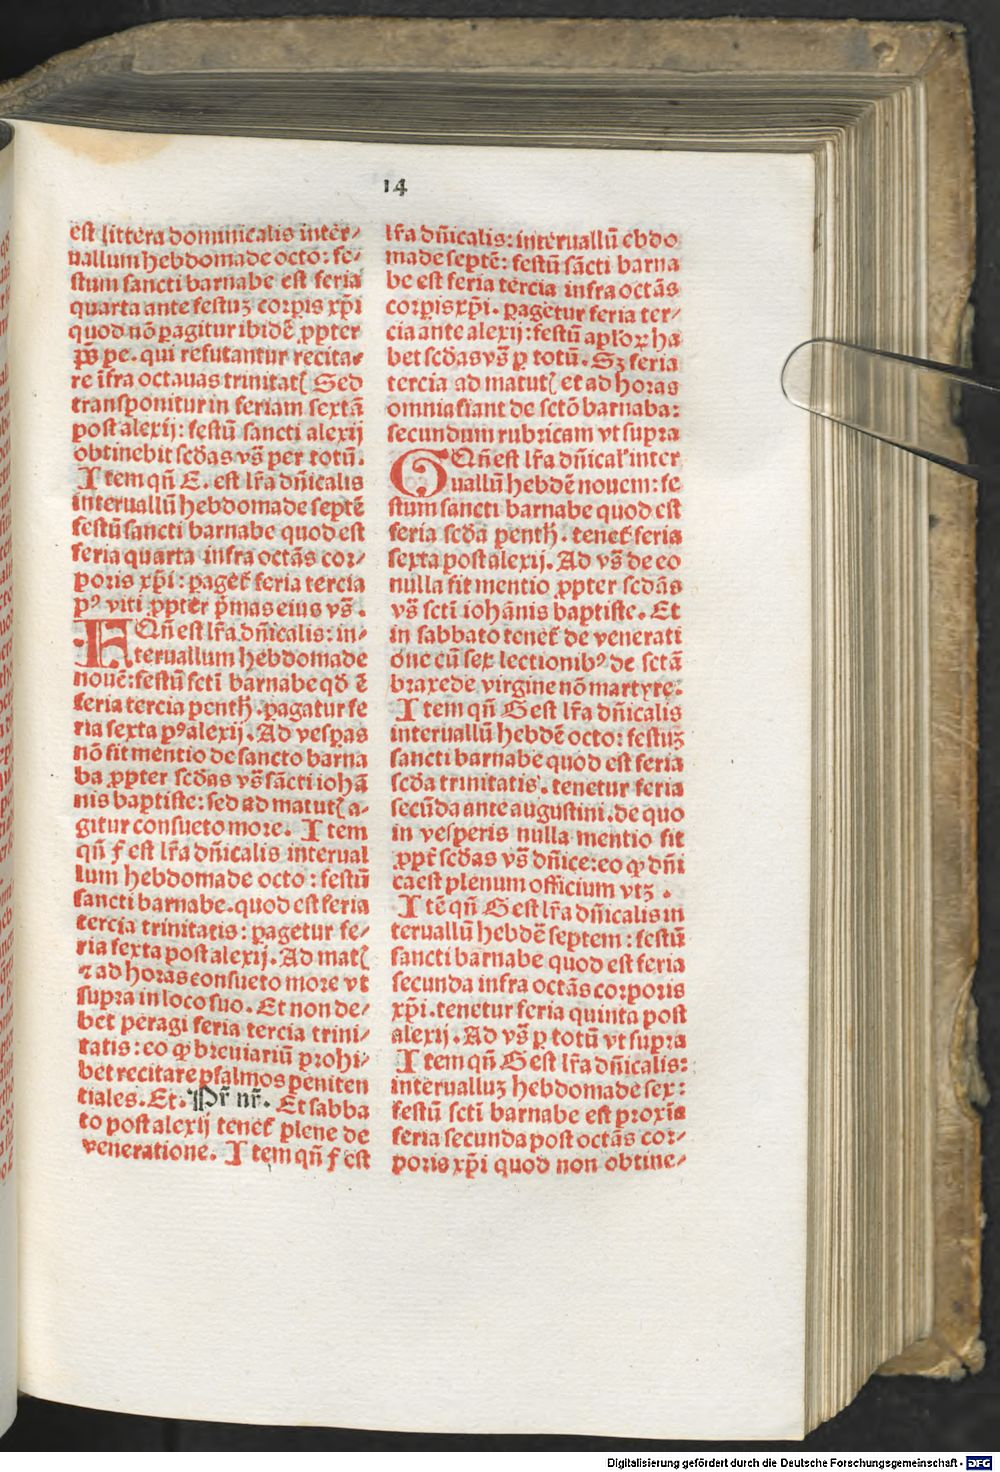 14
est littera dominicalis inter⸗
uallum hebdomade octo: fe⸗
stum sancti barnabe est feria
quarta ante festuʒ corpis xp̄i
quod nō pagitur ibidē ꝓpter
p̄s̄ pe. qui refutantur recita⸗
re īfra octauas trinitatꝭ Sed
transponitur in feriam sextā
post alexij: festū sancti alexij
obtinebit scd̄as vs̄ per totū.
Item qn̄ E. est lr̄a dn̄icalis
interuallū hebdomade septē
festū sancti barnabe quod est
feria quarta infra octās cor⸗
poris xp̄i: pageť feria tercia
pꝰ viti ꝓpter p̄mas eius vs̄.
F Qn̄ est lr̄a dn̄icalis: in⸗
teruallum hebdomade
nouē: festū scti barnabe qd̄ ē
feria tercia penth. pagatur fe
ria sexta pꝰ alexij. Ad vespas
nō fit mentio de sancto barna
ba ꝓpter scd̄as vs̄ sācti iohā
nis baptiste: sed ad matutꝭ a⸗
gitur consueto more. Item
qn̄ f est lr̄a dn̄icalis interual
lum hebdomade octo: festū
sancti barnabe. quod est feria
tercia trinitatis: pagetur fe⸗
ria sexta post alexij. Ad matꝭ
⁊ ad horas consueto more vt
supra in loco suo. Et non de⸗
bet peragi feria tercia trini⸗
tatis: eo ꝙ breuiariū prohi⸗
bet recitare psalmos peniten
tiales. Et. Pr̄ nr̄. Et sabba
to post alexij teneť plene de
veneratione. Item qn̄ f est
lr̄a dn̄icalis: interuallū ebdo
made septē: festū sācti barna
be est feria tercia infra octās
corpis xp̄i. pagetur feria ter⸗
cia ante alexij: festū aplo𝔯 ha
bet scd̄as vs̄ p totū. Sʒ feria
tercia ad matutꝭ et ad horas
omnia fiant de sctō barnaba:
secundum rubricam vt supra
G Qn̄ est lr̄a dn̄ical' inter
uallū hebdē nouem: fe
stum sancti barnabe quod est
feria scd̄a penth. teneť feria
sexta post alexij. Ad vs̄ de eo
nulla fit mentio ꝓpter scd̄as
vs̄ sctī iohānis baptiste. Et
in sabbato teneť de venerati
one cū sex lectionibꝰ de sctā
braxede virgine nō martyre.
Item qn̄ G est lr̄a dn̄icalis
interuallū hebdē octo: festuʒ
sancti barnabe quod est feria
scd̄a trinitatis. tenetur feria
secūda ante augustini. de quo
in vesperis nulla mentio fit
ꝓpť scd̄as vs̄ dn̄ice: eo ꝙ dn̄i
ca est plenum officium vtʒ.
Itē qn̄ G est lr̄a dn̄icalis in
teruallū hebdē septem: festū
sancti barnabe quod est feria
secunda infra octās corporis
xp̄i. tenetur feria quinta post
alexij. Ad vs̄ p totū vt supra
Item qn̄ G est lr̄a dn̄icalis:
interualluʒ hebdomade sex:
festū sctī barnabe est proxīa
feria secunda post octās cor⸗
poris xp̄i quod non obtine⸗
Digitalisierung gefördert durch die Deutsche Forschungsgemeinschaft - DFG